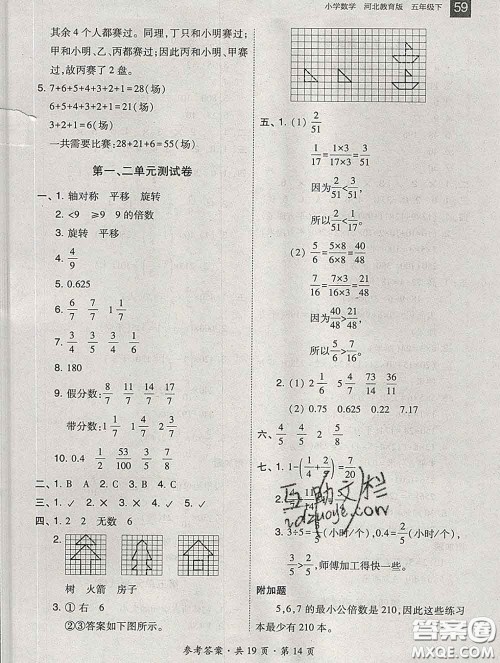 小学数学 河北教育版 五年级下 59
其余4个人都赛过。同理，丁只和小明赛过；
甲和小明、乙、丙都赛过；因此丙和小明、甲赛
过，所以丙赛了2盘。
5. 7+6+5+4+3+2+1=28(场)
6+5+4+3+2+1=21(场)
3+2+1=6(场)
一共需要比赛：28+21+6=55(场)
第一、二单元测试卷
一、1. 轴对称 平移 旋转
2. <9 ≥9 9的倍数
3. 旋转 平移
4. 4/9
5. 0.625
6. 6/7 7/7 1 1/7
7. 3/4 3/5 4/5 3/4
9. 假分数：8/7 11/7 14/9 17/10
带分数：1 1/7 1 4/7 1 5/9 1 7/10
10. 0.4 4/5
二、1. × 2. √ 3. × 4. × 5. ×
四、1. 2 2 无数 6
2.
树 火箭 房子
3. ①右 6
②③答案如下图所示。
五、1. (1) 2/51
1/17=1×3/17×3=3/51
因为2/51<3/51
所以2/51<1/17
(2) 5/6=5×8/6×8=40/48
7/16=7×3/16×3=21/48
因为40/48>21/48
所以5/6>7/16
2. (1) 2 1/6 4 5/7 73/14 36/11
(2) 0.625 1.04 0.22 7.17
六、4/5 4/5 2 5/8
3. 3÷5=3/5(小时/个) 0.4=2/5(小时/个)
3/5>2/5，所以，师傅加工得快一些。
附加题
5,6,7的最小公倍数是210,因此这些练习
本最少有210本。
参考答案·共19页·第14页
互助文栏
MXQE.COM